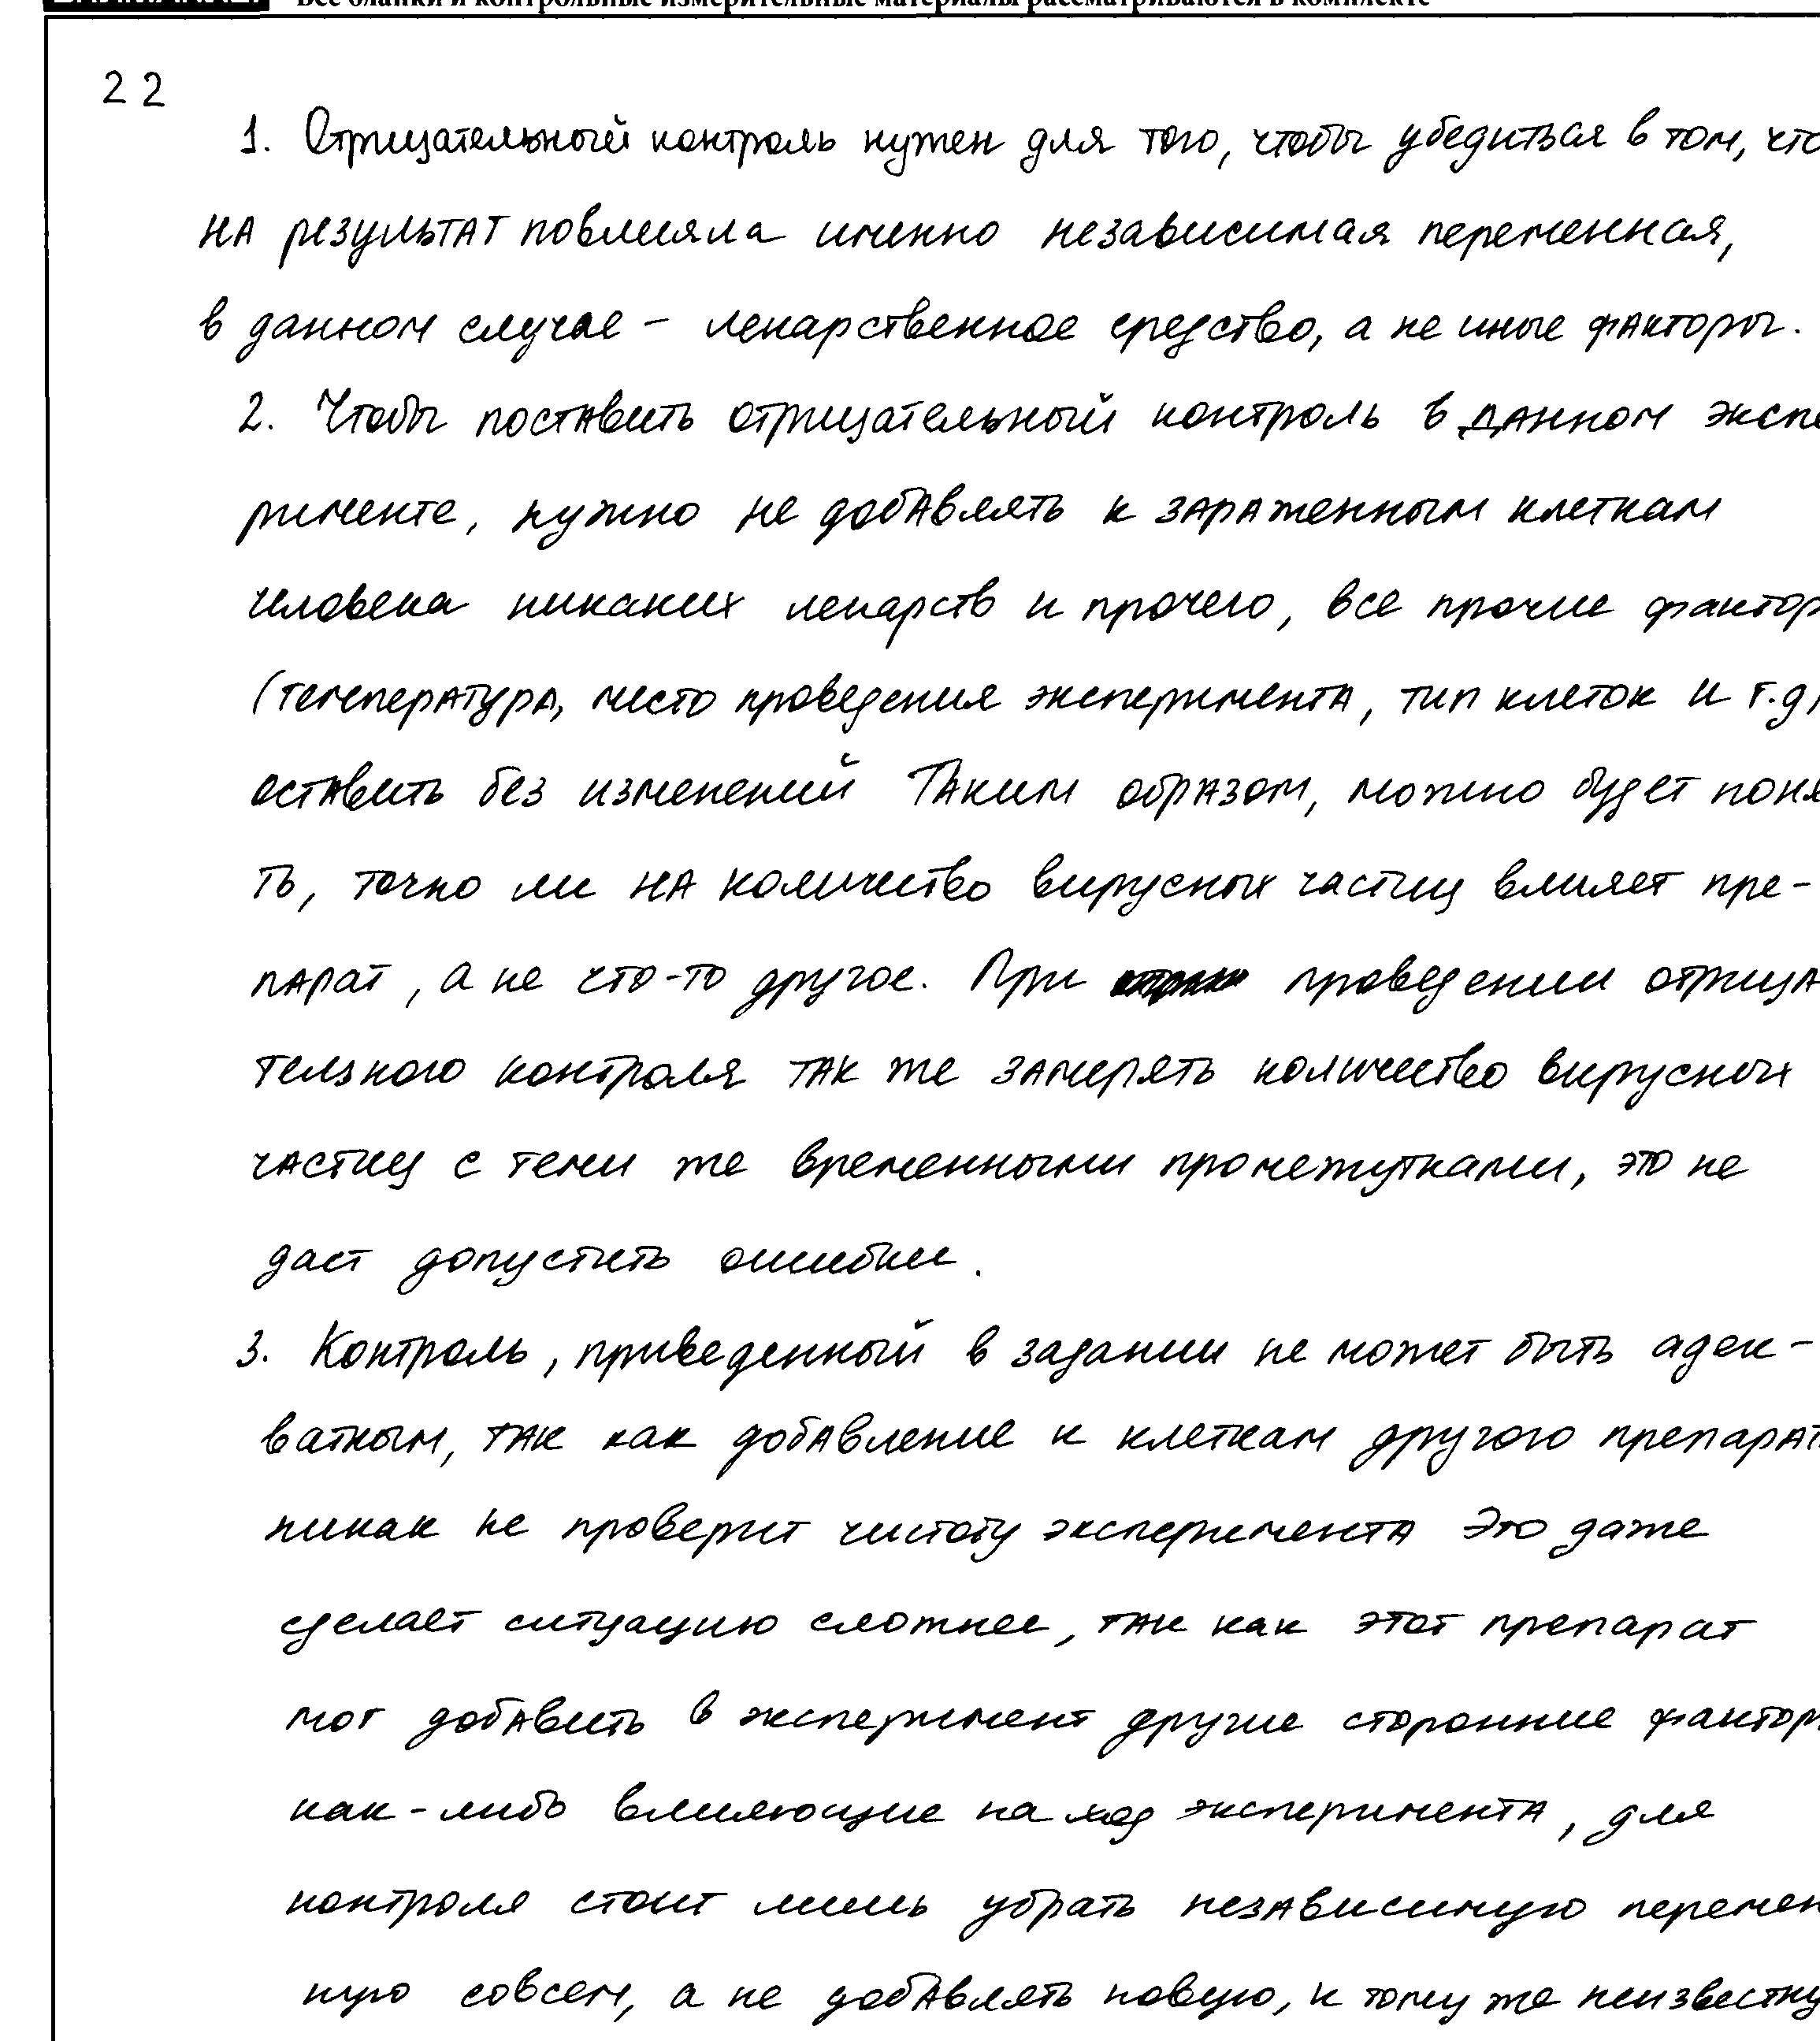 Все бланки и контрольные измерительные материалы рассматриваются в комплекте
22
1. Отрицательный контроль нужен для того, чтобы убедиться в том, что
на результат повлияла именно независимая переменная,
в данном случае – лекарственное средство, а не иные факторы.
2. Чтобы поставить отрицательный контроль в данном экспе
рименте, нужно не добавлять к зараженным клеткам
человека никаких лекарств и прочего, все прочие фактор
(температура, место проведения эксперимента, тип клеток и т.д)
оставить без изменений Таким образом, можно будет поня
ть, точно ли на количество вирусных частиц влияет пре-
парат, а не что-то другое. При проведении отрица
тельного контроля так же замерять количество вирусных
частиц с теми же временными промежутками, это не
даст допустить ошибки.
3. Контроль, приведенный в задании не может быть адек-
ватным, так как добавление к клеткам другого препарат
никак не проверит чистоту эксперимента Это даже
сделает ситуацию сложнее, так как этот препарат
мог добавить в эксперимент другие сторонние фактор
как-либо влияющие на ход эксперимента, для
контроля стоит лишь убрать независимую перемен
ную совсем, а не добавлять новую, к тому же неизвестну